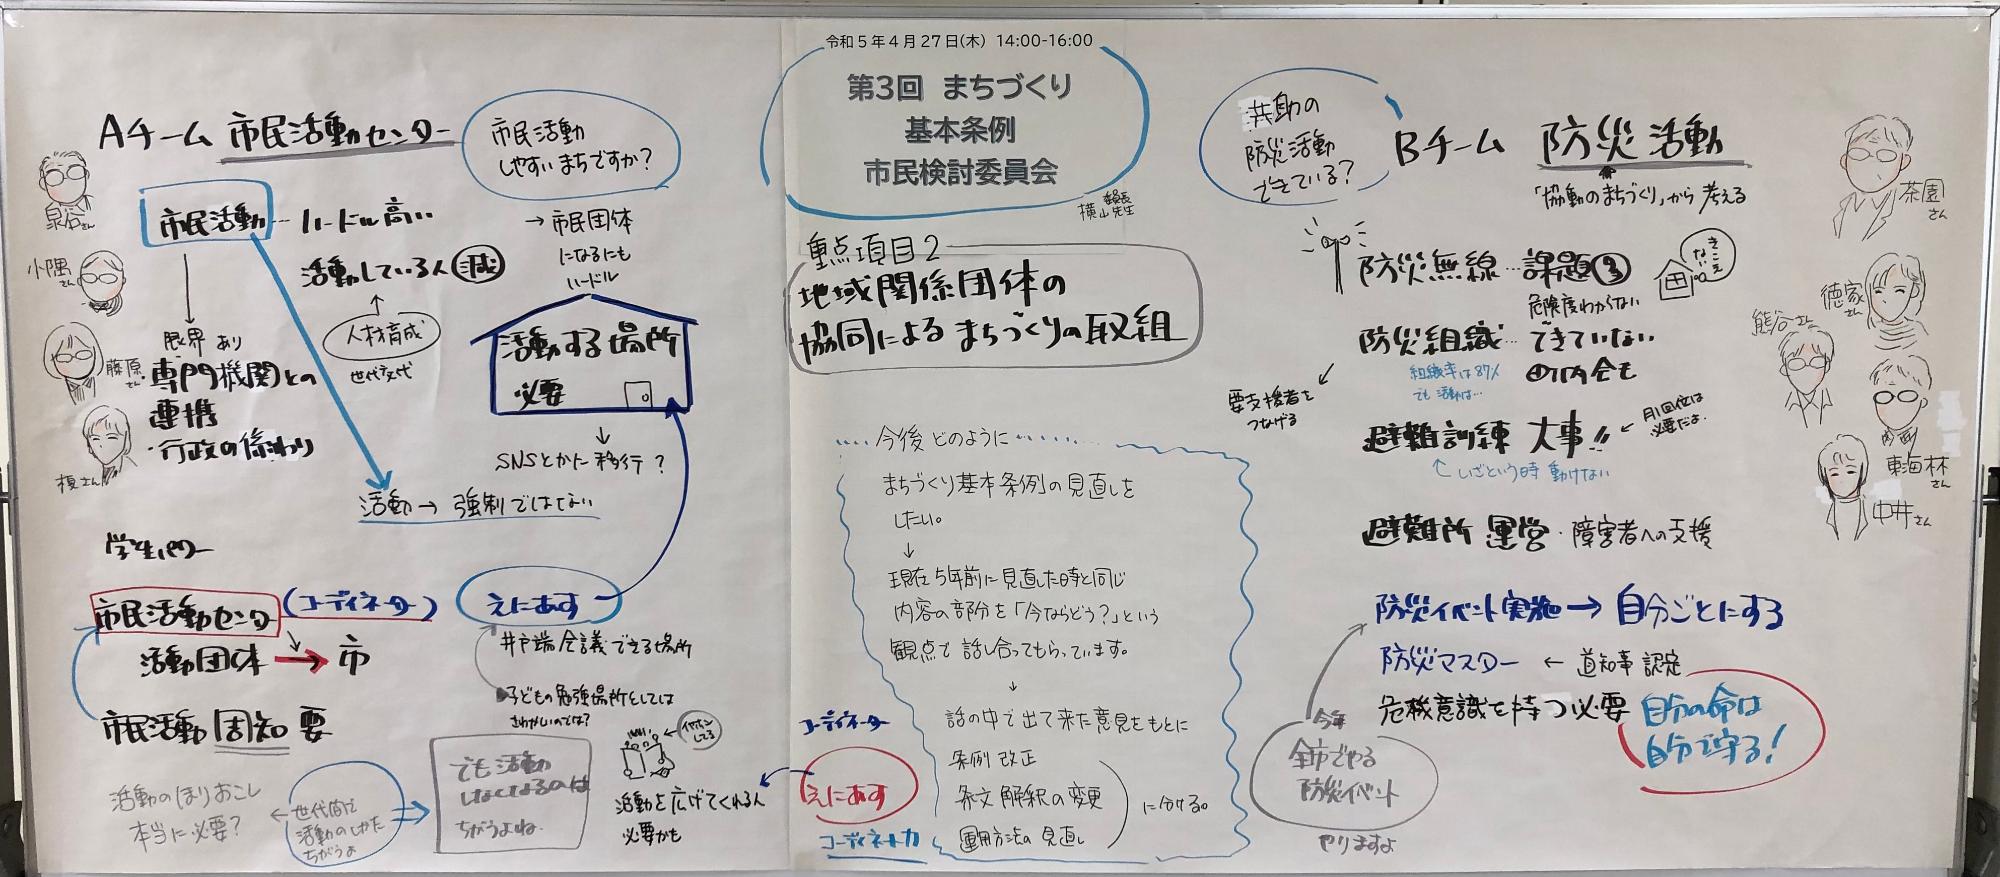 令和5年4月27日(木) 14:00-16:00
第3回 まちづくり
基本条例
市民検討委員会
委員長
横山先生
重点項目2
地域関係団体の
協同によるまちづくりの取組
Aチーム 市民活動センター
市民活動
しやすいまちですか?
泉谷さん
小隅さん
藤原さん
榎さん
市民活動…ハードル高い
活動している人 減
↑
人材育成
世代交代
→市民団体
になるにも
ハードル
限界あり
専門機関との
連携
・行政の係わり
活動する場所
必要
↓
SNSとかに移行?
活動→強制ではない
学生パワー
市民活動センター(コーディネーター)
活動団体→市
市民活動 周知 要
えにあす
井戸端会議できる場所
子どもの勉強場所としては
さわがしいのでは?
イヤホンしてる
活動のほりおこし
本当に必要?
←世代間で
活動のしかた
ちがうよ
でも活動
しなくなるのは
ちがうよね
活動を広げてくれる人
必要かも
コーディネーター
えにあす
コーディネート力
今後どのように
まちづくり基本条例の見直しを
したい。
↓
現在5年前に見直した時と同じ
内容の部分を「今ならどう?」という
観点で話し合ってもらっています。
↓
話の中で出て来た意見をもとに
条例改正
条文解釈の変更
運用方法の見直し
に分ける。
共助の
防災活動
できている?
Bチーム 防災活動
「協働のまちづくり」から考える
茶園さん
徳家さん
熊谷さん
東海林さん
中井さん
防災無線…課題③
きこえない
危険度わからない
防災組織…できていない
組織率は87%
でも活動は…
町内会も
要支援者を
つなげる
避難訓練 大事!!
←月1回位は
必要だよ.
いざという時 動けない
避難所 運営・障害者への支援
防災イベント実施→自分ごとにする
防災マスター ← 道知事認定
危機意識を持つ必要
自分の命は
自分で守る!
今年
全市でやる
防災イベント
やりますよ